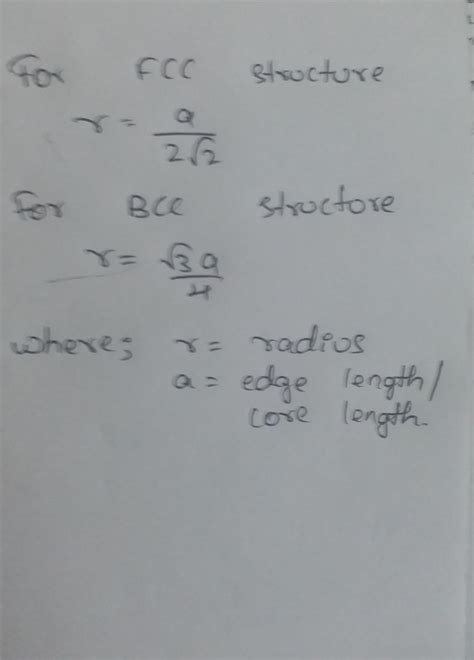 For FCC structure
r = a / 2√2
For BCC structore
r = √3 a / 4
where; r = radius
a = edge length/
core length.